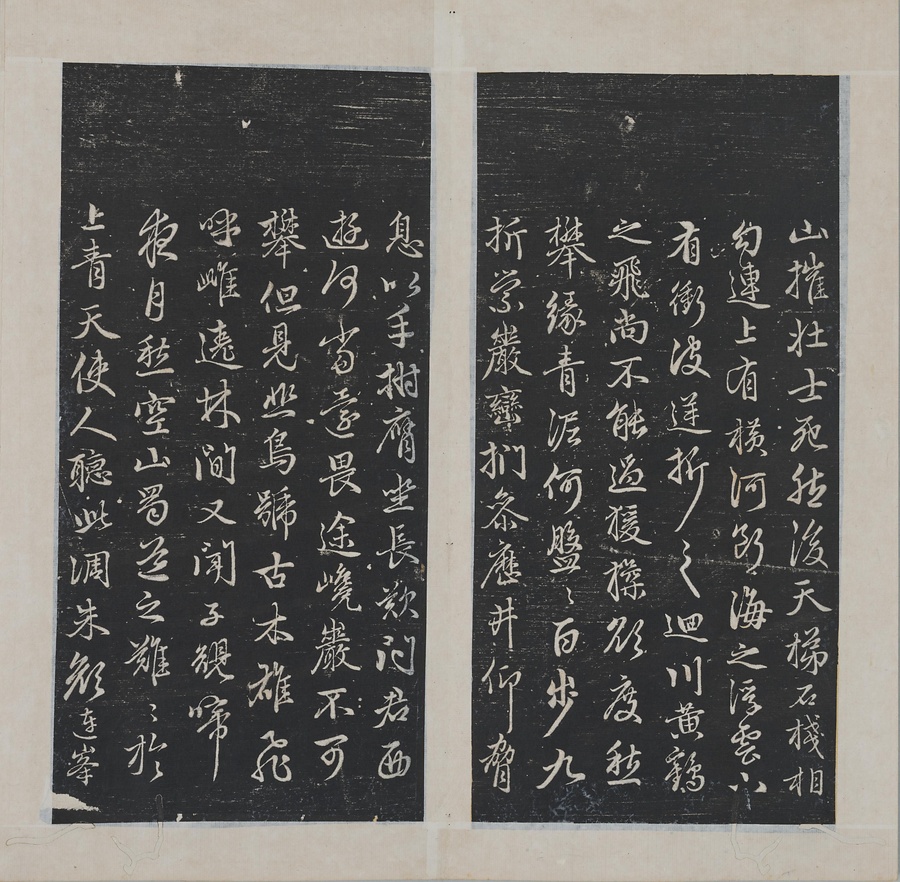 山摧壯士死然後天梯石棧相
勾連上有橫河斷海之浮雲下
有衝波逆折之迴川黃鶴
之飛尚不能過猨猱欲度愁
攀緣青泥何盤〻百步九
折縈巖巒捫參歷井仰脅
息以手拊膺坐長歎問君西
遊何當還畏途巉巖不可
攀但見悲鳥號古木雄飛
呼雌遶林間又聞子規啼
夜月愁空山蜀道之難〻於
上青天使人聽此凋朱顏連峯